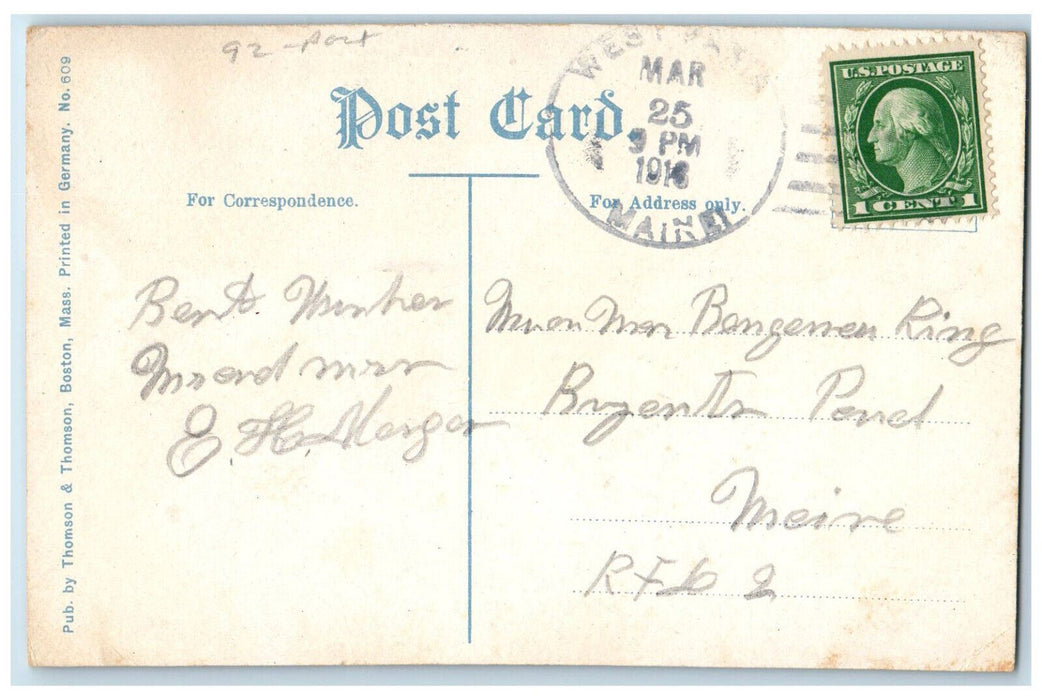 92-Post
Post Card.
WEST PARIS
MAR
25
3 PM
1916
MAINE.
U.S. POSTAGE
1 CENT 1
For Correspondence.
For Address only.
Best Wishes
Mr and Mrs
E. H.
King
Bryants Pond
Meine
RFD 2
Pub. by Thomson & Thomson, Boston, Mass. Printed in Germany. No. 609